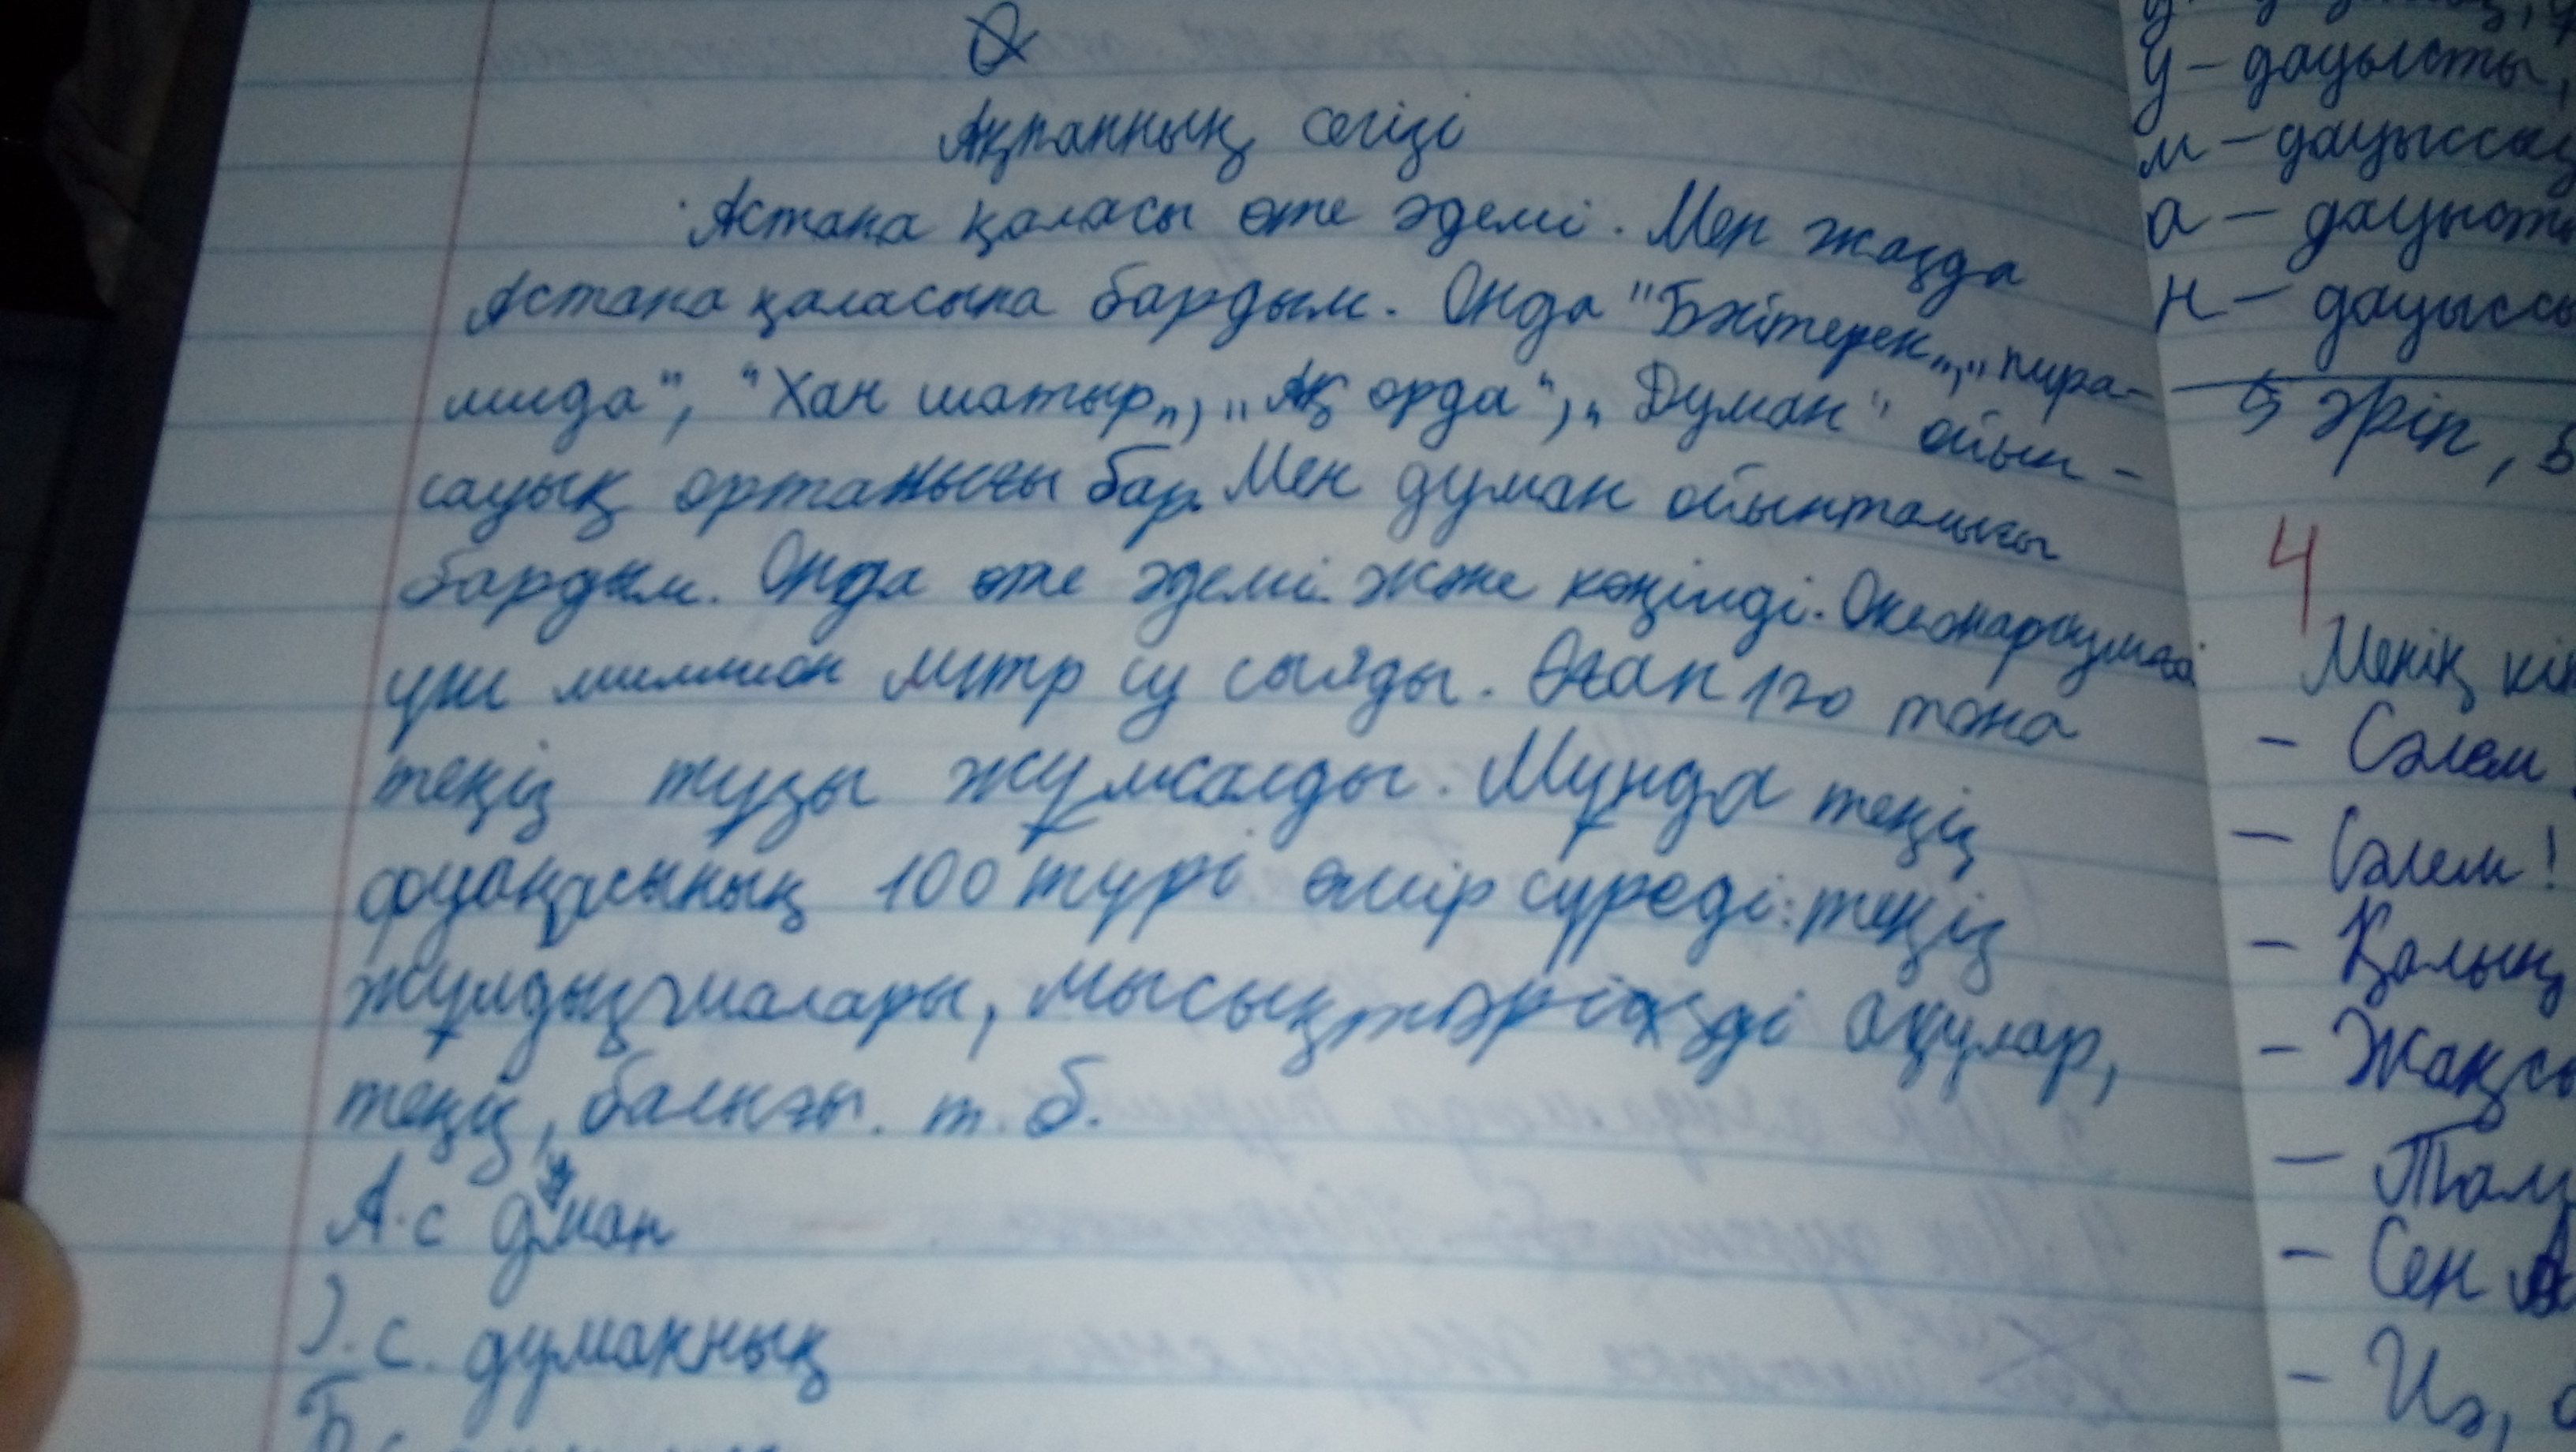 Ақпанның сегізі
Астана қаласы өте әдемі. Мен жазда
Астана қаласына бардым. Онда "Бәйтерек„,„пира-
мида", "Хан шатыр„,„Ақ орда",„Думан" ойын-
сауық орталығы бар. Мен думан
бардым. Онда өте әдемі және көңілді.
үш миллион литр су сыяды. Оған 120 тона
теңіз тұзы жұмсалды. Мұнда теңіз
фауанасының 100 түрі өмір сүреді: теңіз
жұлдызшалары, мысықтәрізді ақулар,
теңіз, балығы. т.б.
А.с думан
І.с. думанның
у - дауысты,
м - дауыссыз
а - дауысты
н - дауыссы
5 әріп, 5
4
Менің кі
- Сәлем
- Сәлем!
- Қалың
- Жақсы
- Сен
- Иә,